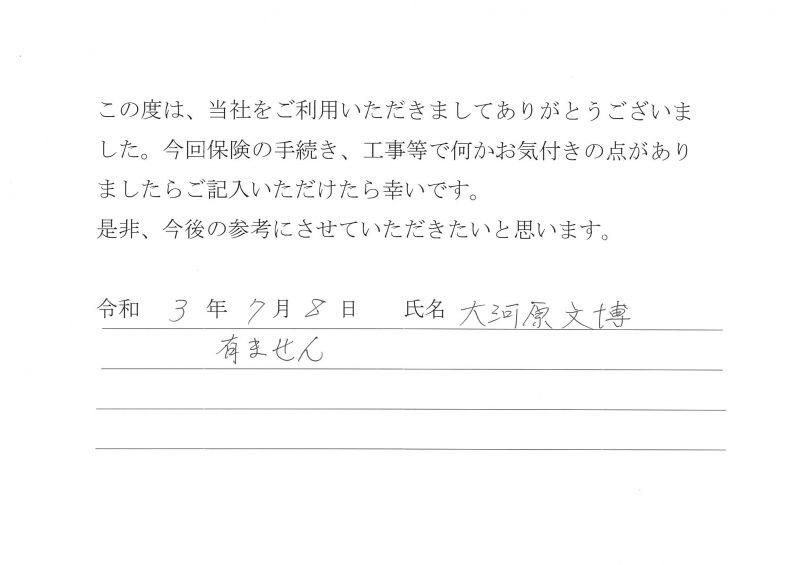 この度は、当社をご利用いただきましてありがとうございま
した。今回保険の手続き、工事等で何かお気付きの点があり
ましたらご記入いただけたら幸いです。
是非、今後の参考にさせていただきたいと思います。
令和 3 年 7 月 8 日 氏名 大河原文博
有ません